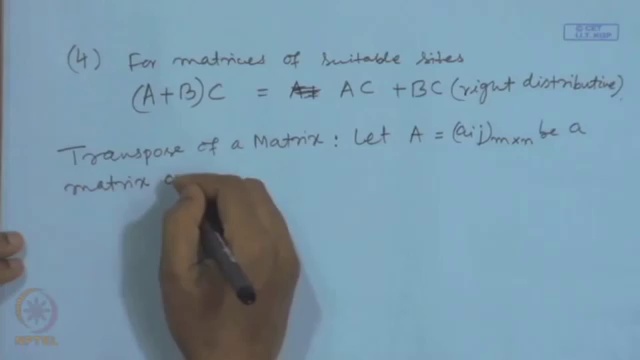 © CET
I.I.T. KGP
(4) For matrices of suitable sites
(A+B)C = AC + BC (right distributive)
Transpose of a Matrix : Let A = (aij)m×n be a
matrix
NPTEL